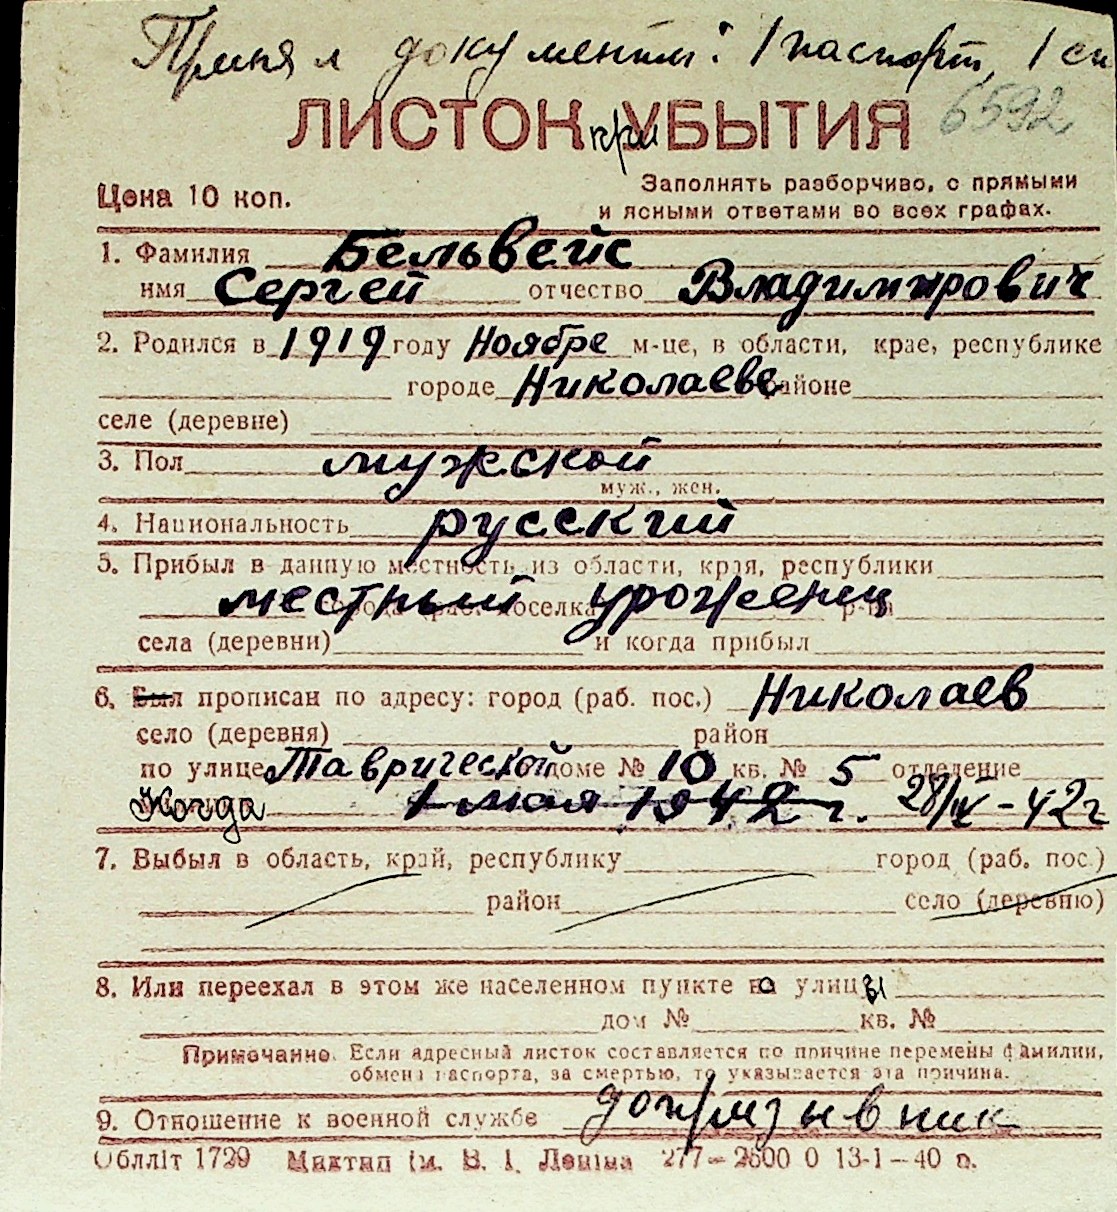 Принял документы: 1 паспорт, 1 сп
ЛИСТОК при УБЫТИЯ 6592
Цена 10 коп.
Заполнять разборчиво, с прямыми
и ясными ответами во всех графах.
1. Фамилия Бельвейс
имя Сергей отчество Владимирович
2. Родился в 1919 году Ноябре м-це, в области, крае, республике
городе Николаеве районе
селе (деревне)
3. Пол мужской
муж., жен.
4. Национальность русский
5. Прибыл в данную местность из области, края, республики
местный уроженец поселка р-на
села (деревни) и когда прибыл
6. Был прописан по адресу: город (раб. пос.) Николаев
село (деревня) район
по улице Таврической доме № 10 кв. № 5 отделение
Когда 1 мая 1942 г. 28/IV-42г
7. Выбыл в область, край, республику город (раб. пос.)
район село (деревню)
8. Или переехал в этом же населенном пункте на улицы
дом № кв. №
Примечание. Если адресный листок составляется по причине перемены фамилии,
обмена паспорта, за смертью, то указывается эта причина.
9. Отношение к военной службе допризывник
Обллiт 1729 iм. В. I. Ленiна 277-2600 0 13-1-40 р.